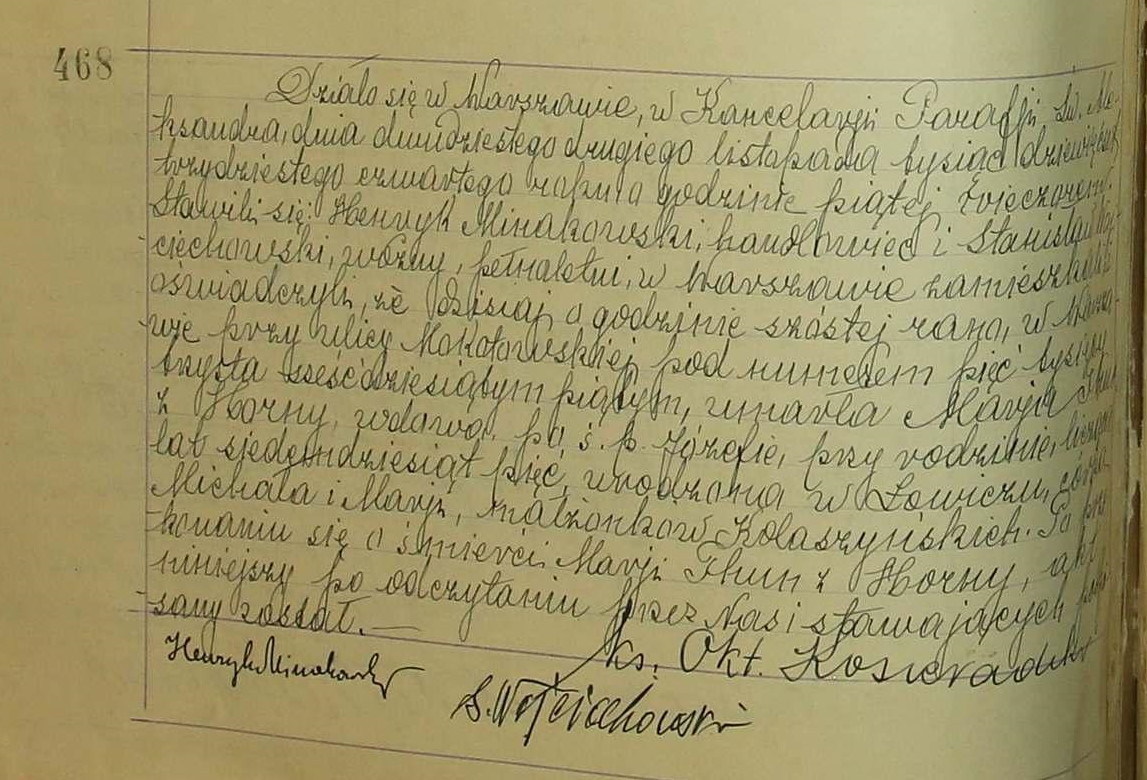 468
Działo się w Warszawie, w Kancelarji Parafji św. Ale-
ksandra, dnia dwudziestego drugiego listopada tysiąc dziewięćset
trzydziestego czwartego roku o godzinie piątej wieczorem.
Stawili się: Henryk Minakowski, handlowiec i Stanisław Woj-
ciechowski, woźny, pełnoletni, w Warszawie zamieszkali i
oświadczyli, że dzisiaj o godzinie szóstej rano, w Warsza-
wie przy ulicy Mokotowskiej pod numerem pięć tysięcy
trzysta sześćdziesiątym piątym, umarła Marja Thun
z Horny, wdowa po ś. p. Józefie, przy rodzinie, licząca
lat siedemdziesiąt pięć, urodzona w Łowiczu, córka
Michała i Marji, małżonków Kołaszyńskich. Po prze-
konaniu się o śmierci Marji Thun z Horny, akt
niniejszy po odczytaniu przez Nas i stawających podpi-
sany został. —
Henryk Minakowski
ks. Okt.
S. Wojciechowski